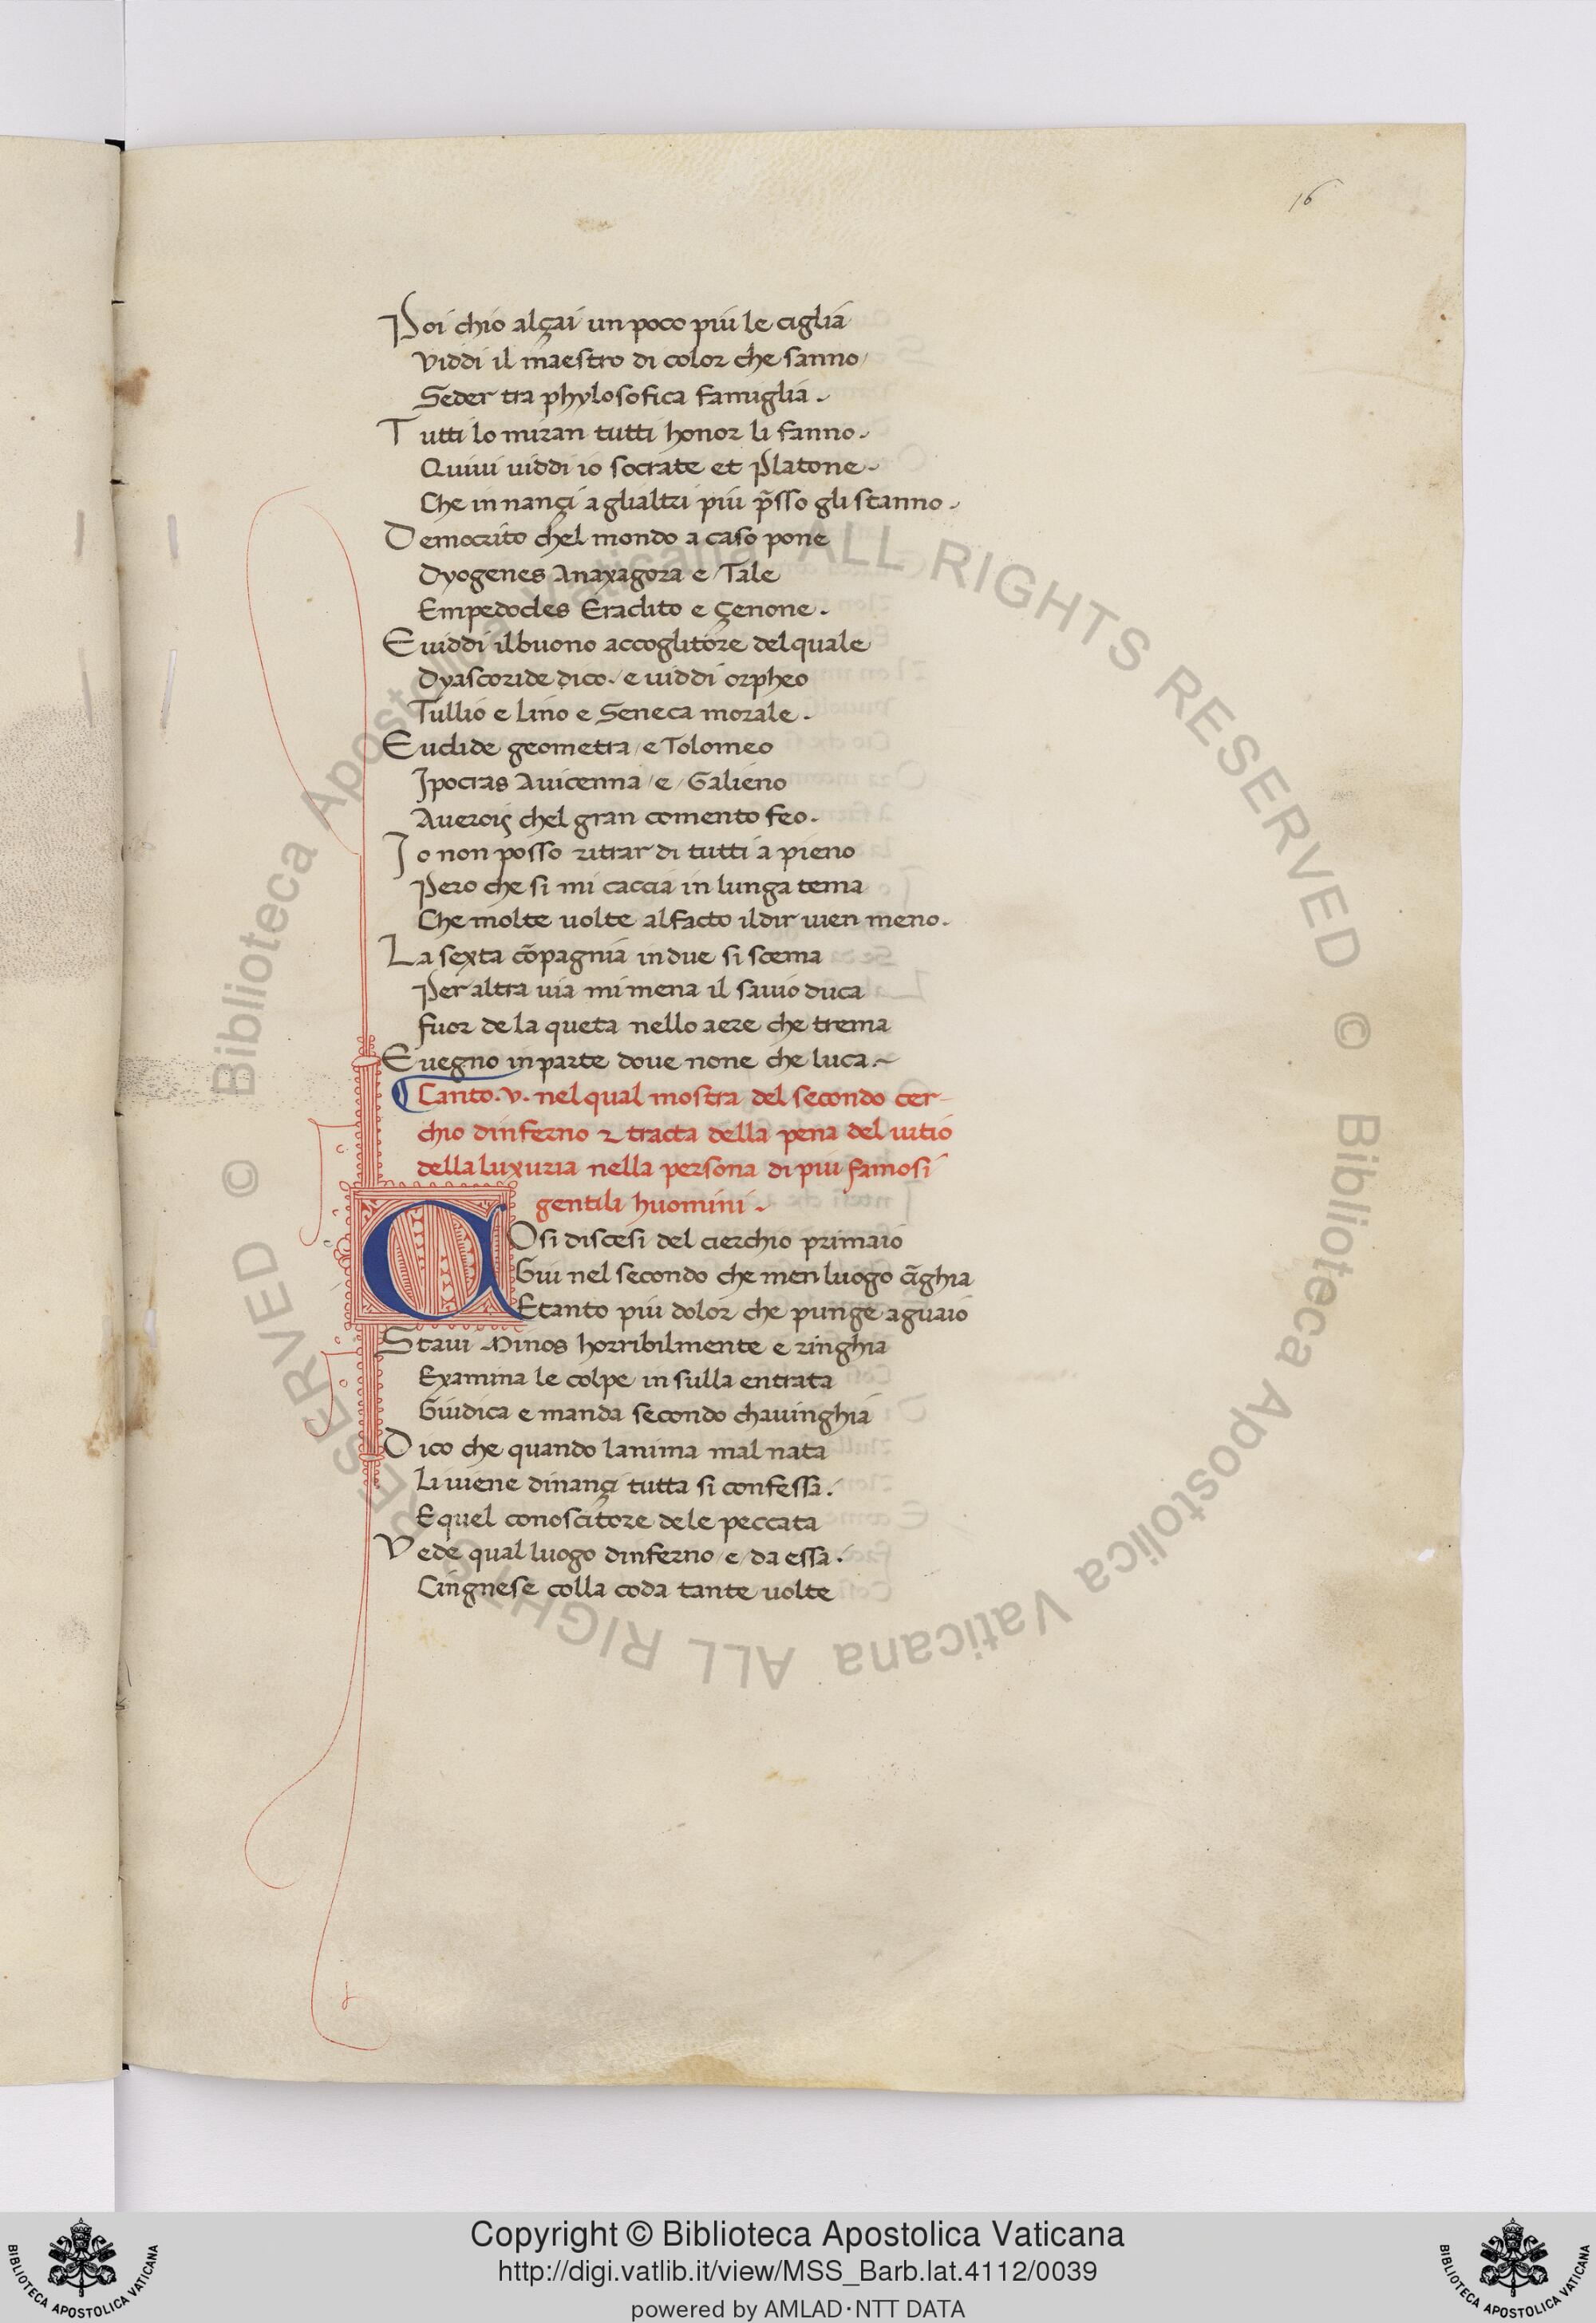 16
Poi chio alçai un poco piu le ciglia
Viddi il maestro di color che sanno
Seder tra phylosofica famiglia.
Tutti lo miran tutti honor li fanno.
Quiui uiddi io socrate et Platone.
Che innançi aglialtri piu p̄sso gli stanno.
Democrito chel mondo a caso pone
Dyogenes Anaxagora e/Tale
Empedocles Eraclito e Çenone.
Euiddi ilbuono accoglitore delquale
Dyascoride dico./e uiddi orpheo
Tullio e Lino e Seneca morale.
Euclide geometra/e Tolomeo
Ipocras Auicenna/e/Galieno
Aueroiç chel gran comento feo.
Io non posso ritrar di tutti a pieno
Pero che si mi caccia in lunga tema
Che molte uolte alfacto ildir uien meno.
La sexta cōpagnia indue si scema
Per altra uia mi mena il sauio duca
fuor de la queta nello aere che trema
Euegno inparte doue none che luca.
Canto.v. nelqual mostra del secondo cer-
chio dinferno & tracta della pena del uitio
della luxuria nella persona di piu famosi
gentili huomini.
COsi discesi del cierchio primaio
Giu nel secondo che men luogo cīghia
Etanto piu dolor che punge aguaio
Staui Minos horribilmente e ringhia
Examina le colpe in sulla entrata
Giudica e manda secondo chauinghia
Dico che quando lanima mal nata
Li uiene dinançi tutta si confessa.
Equel conoscitore dele peccata
Vede qual luogo dinferno/e/da essa.
Cingnese colla coda tante uolte
© Biblioteca Apostolica Vaticana ALL RIGHTS RESERVED © Biblioteca Apostolica Vaticana ALL RIGHTS RESERVED
Copyright © Biblioteca Apostolica Vaticana
http://digi.vatlib.it/view/MSS_Barb.lat.4112/0039
powered by AMLAD·NTT DATA
BIBLIOTECA APOSTOLICA VATICANA
BIBLIOTECA APOSTOLICA VATICANA